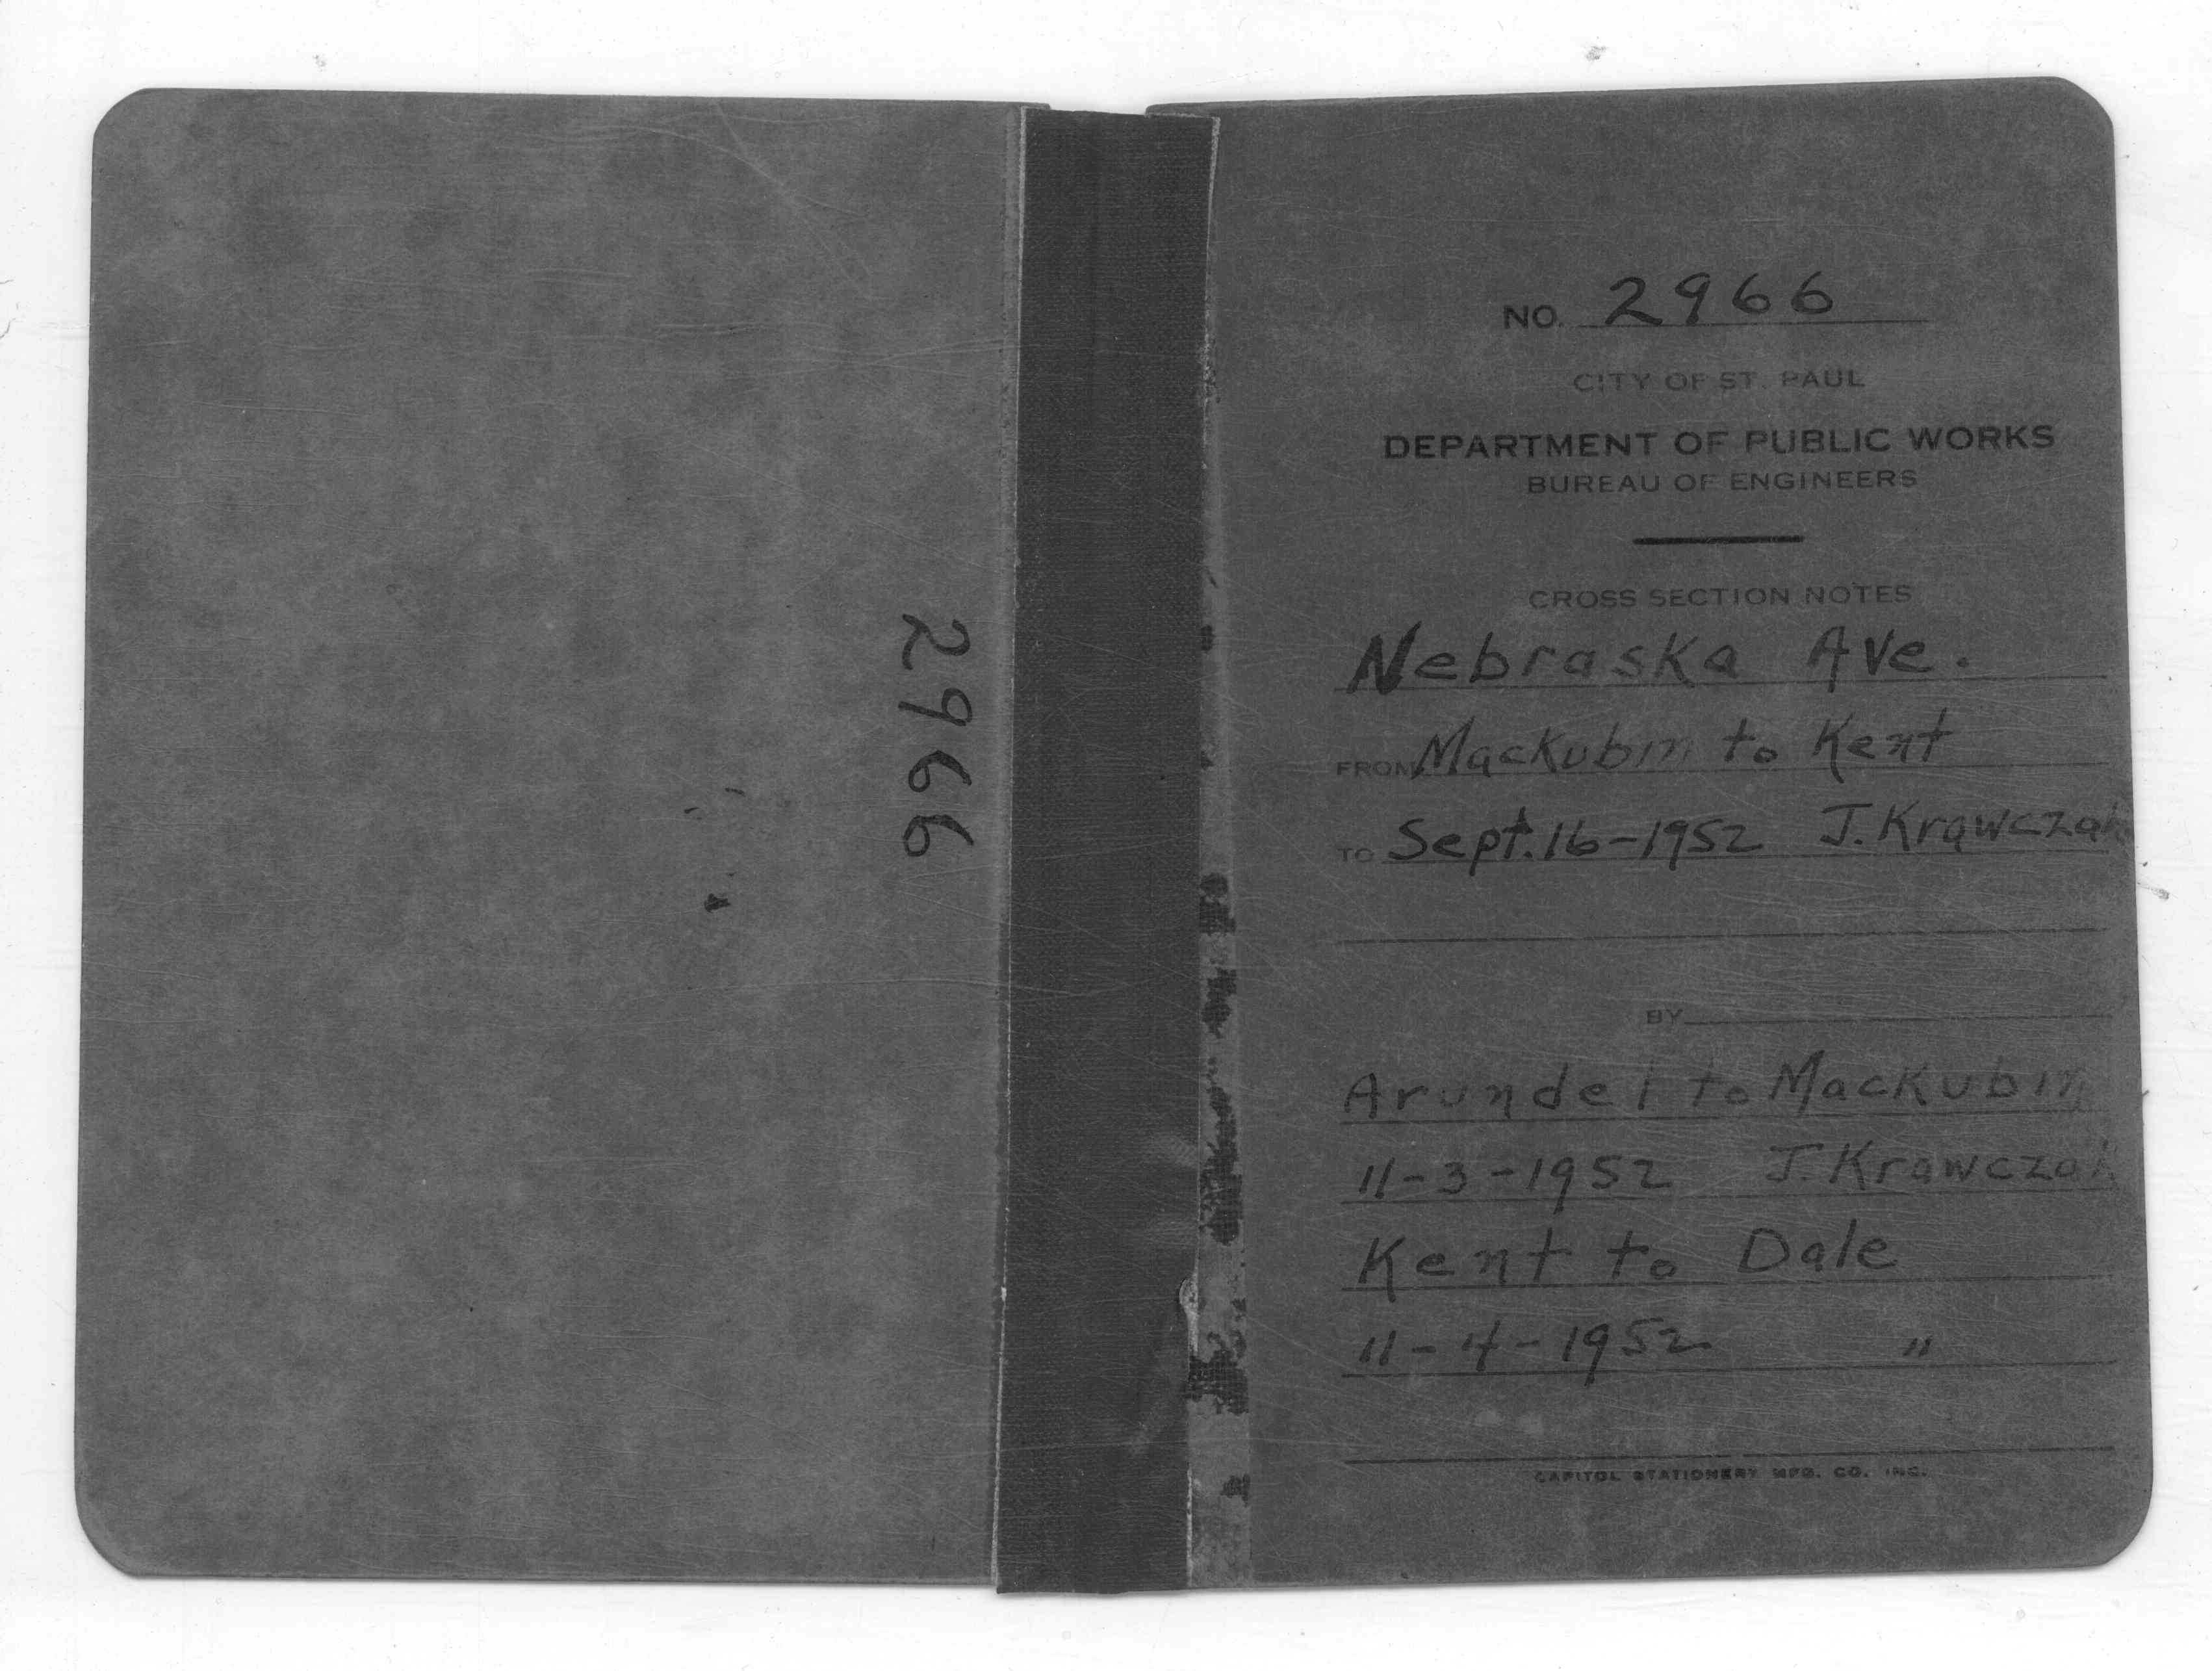 2966
NO. 2966
CITY OF ST. PAUL
DEPARTMENT OF PUBLIC WORKS
BUREAU OF ENGINEERS
CROSS SECTION NOTES
Nebraska Ave.
FROM Mackubin to Kent
TO Sept. 16-1952 J. Krawczak
BY
Arundel to Mackubin
11-3-1952 J. Krawczak
Kent to Dale
11-4-1952 "
CAPITOL STATIONERY MFG. CO. INC.